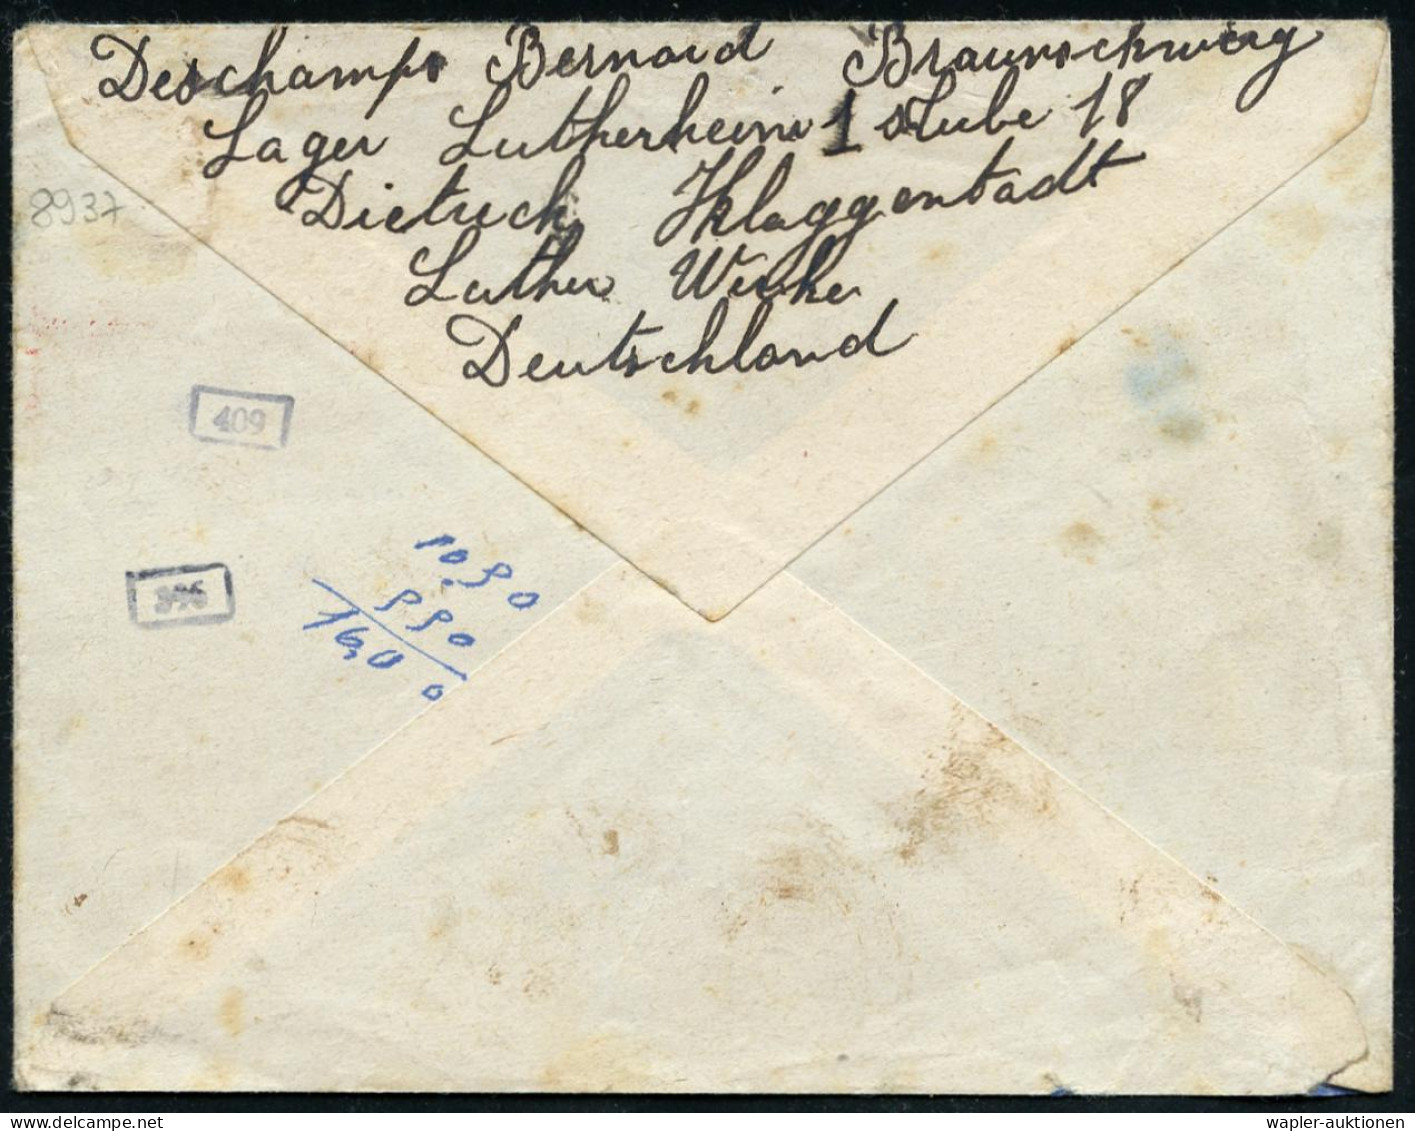 Deschamps Bernard Braunschweig
Lager Lutherheim 1 stube 18
Dietrich Klaggenstadt
8937
Luther Werke
Deutschland
409
396
1090
990
160 0
wapler-auktionen.com